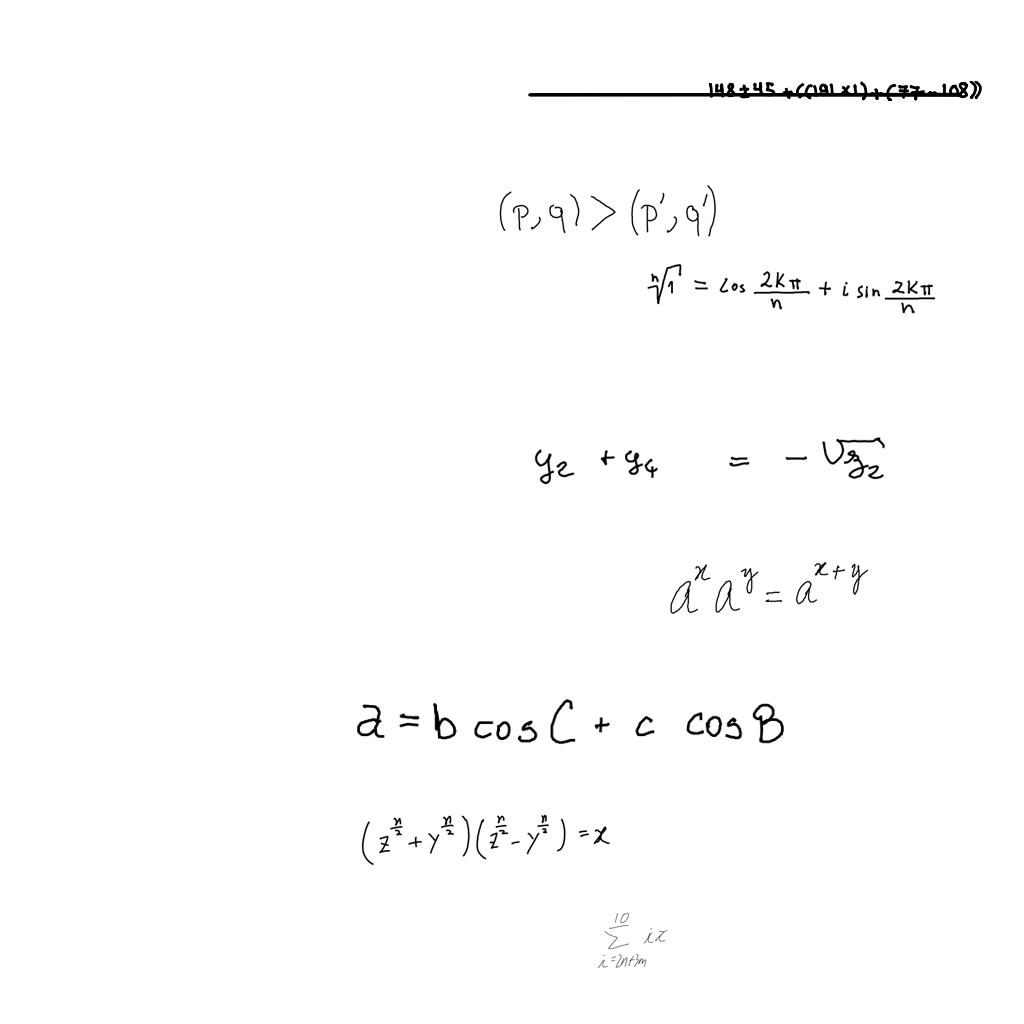 148 ± 45 + ((191 × 1) + (77 - 108))
(p, q) > (p', q')
ⁿ√1 = cos 2kπ/n + i sin 2kπ/n
y₂ + y₄ = -√z₂
aˣ aʸ = aˣ⁺ʸ
a = b cos C + c cos B
(z^{n/2} + y^{n/2})(z^{n/2} - y^{n/2}) = x
∑_{i=2n+3m}^{10} ix